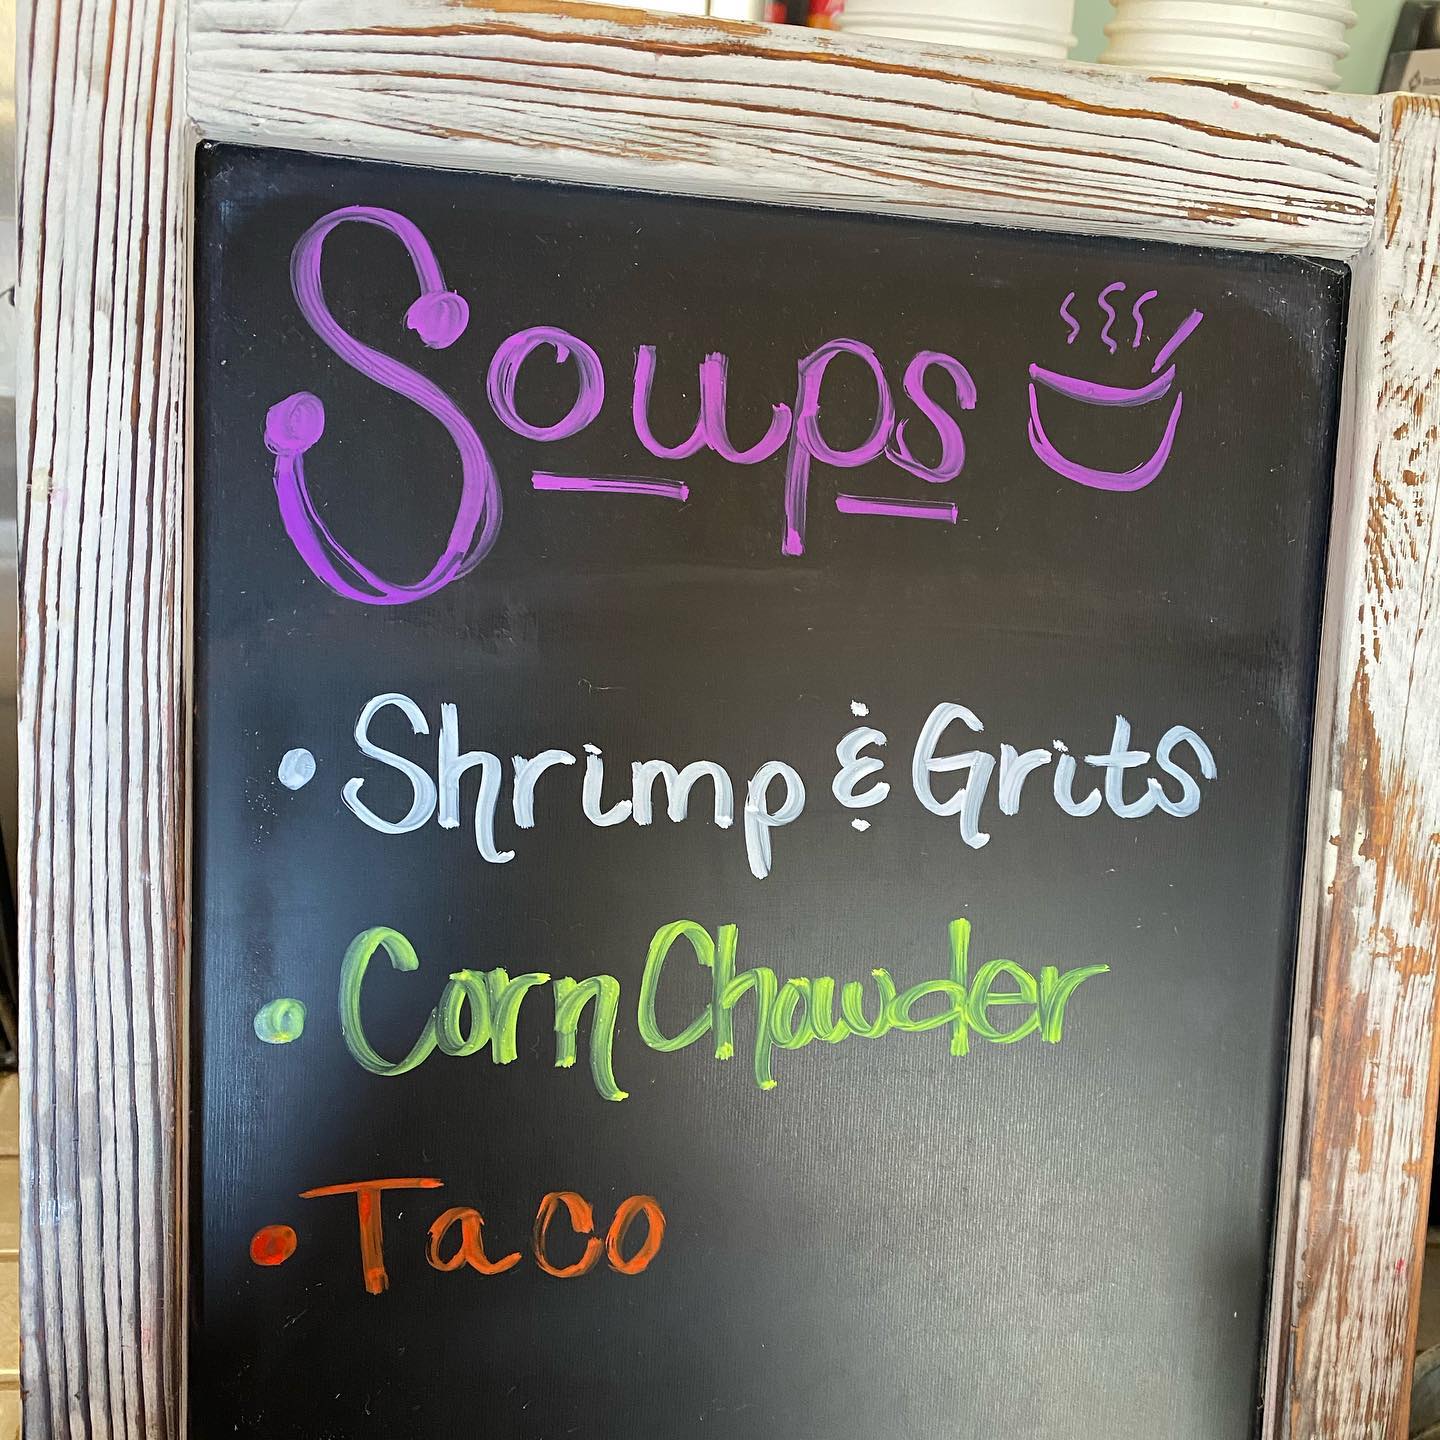 Soups
• Shrimp & Grits
• Corn Chowder
• Taco